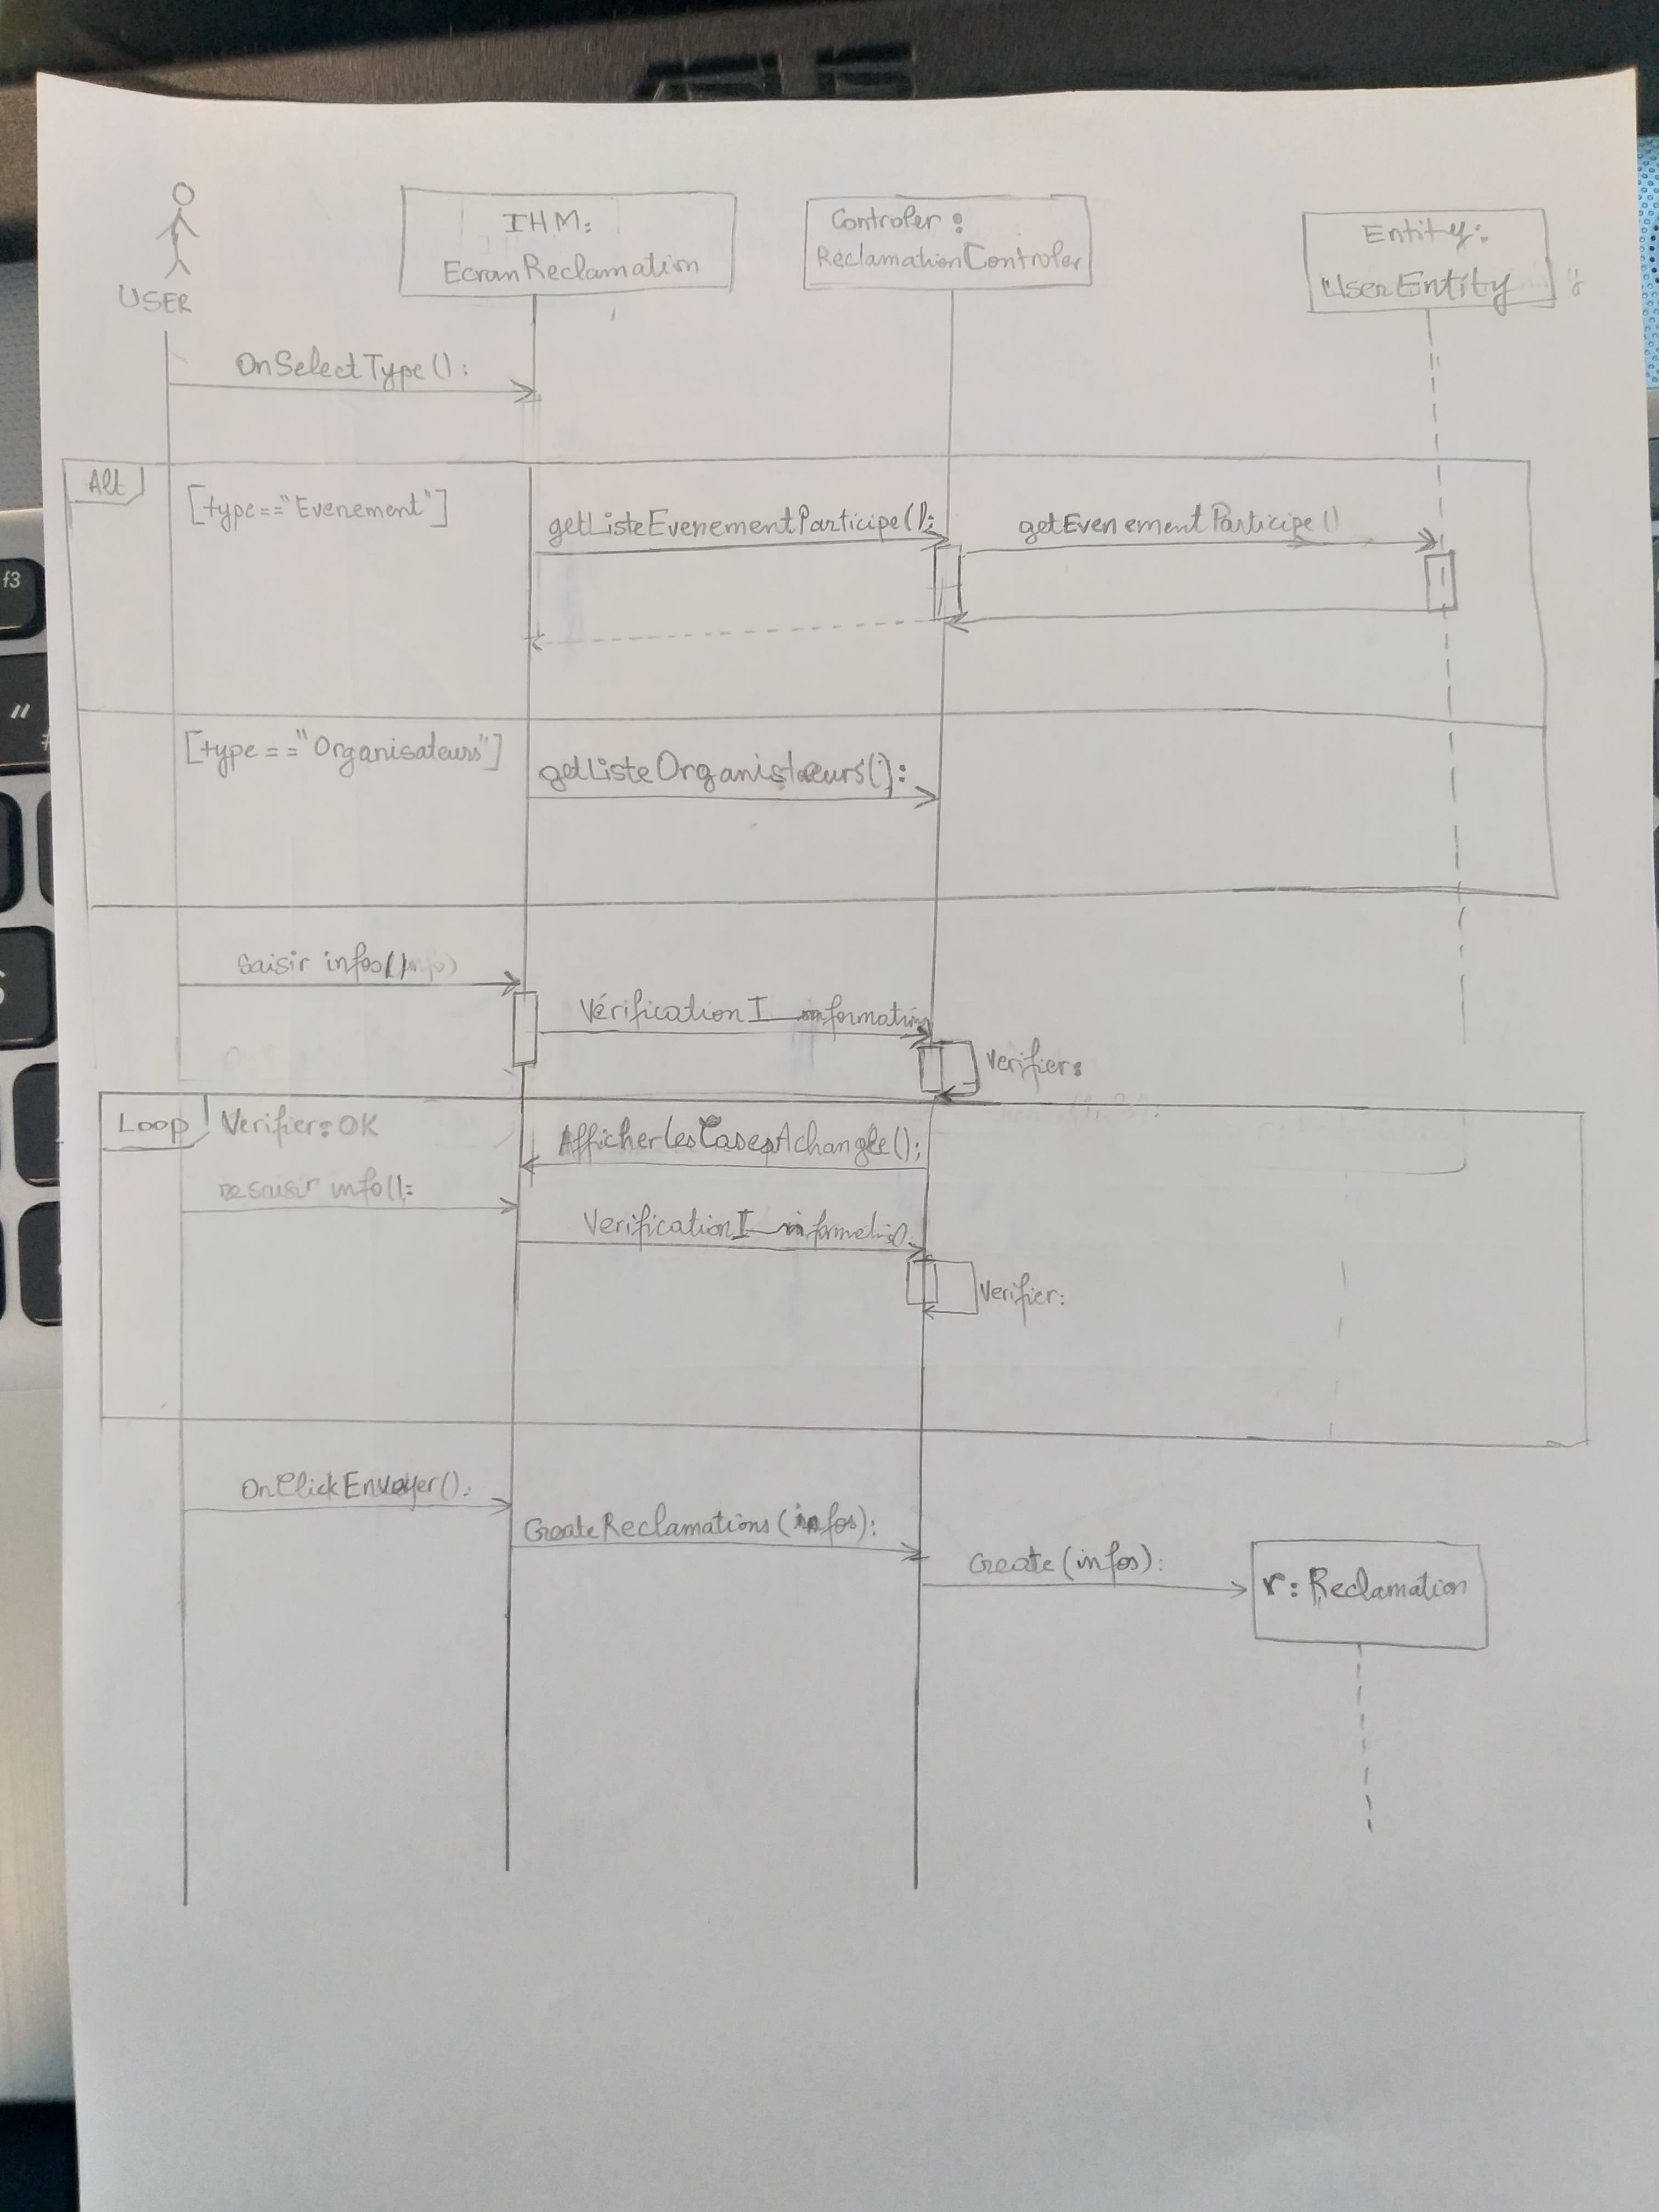 IHM:
EcranReclamation
Controler:
ReclamationControler
Entity:
UserEntity
USER
OnSelectType():
Alt
[type=="Evenement"]
getListeEvenementParticipe():
getEvenementParticipe()
[type=="Organisateurs"]
getListeOrganistaeurs():
Saisir infos(
VérificationI information
Verifier:
Loop
Verifier:OK
AfficherLesCasesAchangée():
Resaisir info():
VerificationI
Verifier:
OnClickEnvoyer():
CreateReclamations(infos):
Create(infos):
r:Reclamation
f3